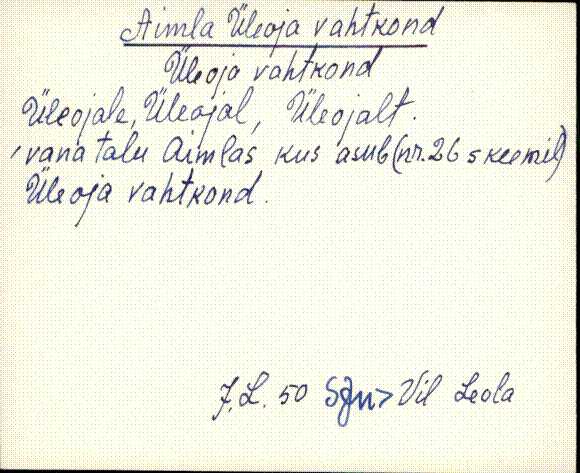 Aimla Üleoja vahtkond
Üleoja vahtkond
Üleojale, Üleojal, Üleojalt.
vana talu Aimlas kus asub (nr. 26 skeemil)
Üleoja vahtkond.
J. L. 50 Sjn > Vil Leola